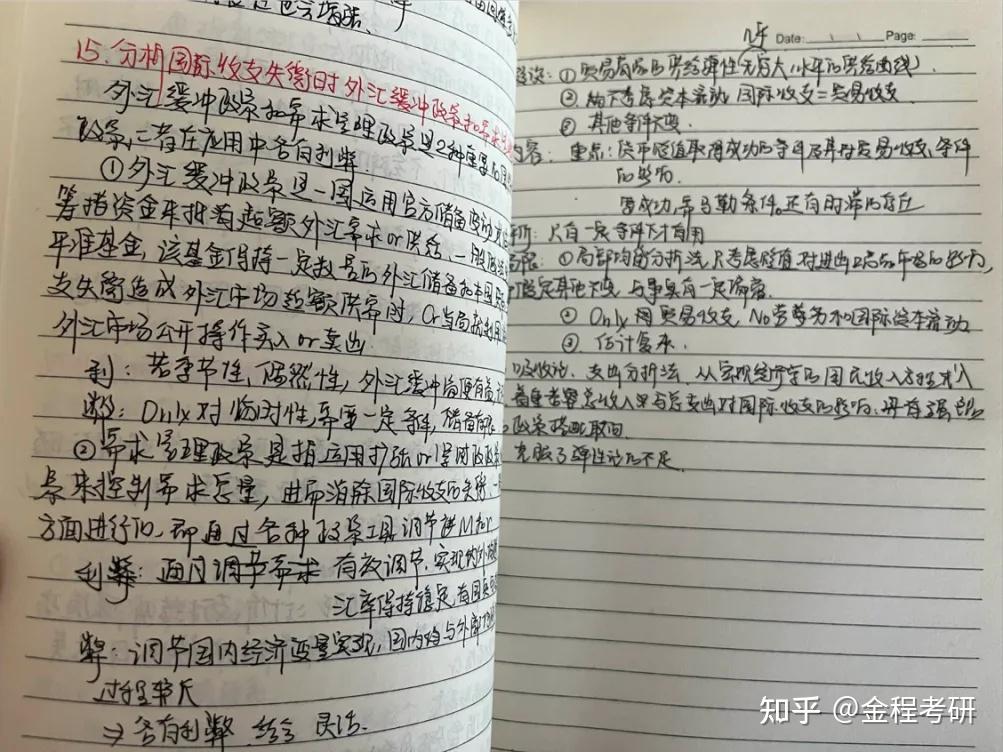 15. 分析国际收支失衡时外汇缓冲政策和需求
外汇缓冲政策和需求管理政策是2种重要的
政策,二者在应用中各有利弊
①外汇缓冲政策是一国运用官方储备变动
筹措资金来抵消超额外汇需求or供给,一般
平准基金,该基金保持一定数量的外汇储备和本国
支失衡造成外汇市场超额供需时,
外汇市场公开操作买入or卖出
利:若季节性,偶然性,外汇缓冲
弊:Only对临时性,需要一定条件,储备
②需求管理政策是指运用扩张or紧
策来控制需求总量,进而消除国际收支的失衡.一
方面进行的,即通过各种政策工具调节
利 有效调节.实现
汇率保持稳定,
弊:调节国内经济变量实现,国内均与外部
过程较长
⇒各有利弊.结合 灵活.
Date: Page:
①贸易商品的供给弹性无穷大(水平的供给曲线).
②暂不考虑资本流动 国际收支=贸易收支
③其他条件不变.
重点:货币贬值取得成功的条件及其对贸易收支、条件
的影响.
要成功,需马勒条件,还有时滞的存在
只有一定条件下才有用
①局部均衡分析法,只考虑贬值对进出口商品市场的影响,
假定其他不变 与事实有一定偏离.
②Only 用贸易收支 No劳务和国际资本流动
③估计复杂.
吸收论.支出分析法.从宏观经济中的国民收入方程式入
着重考察总收入与总支出对国际收支的影响.
政策搭配取向.
克服了弹性论的不足.
知乎 @金程考研